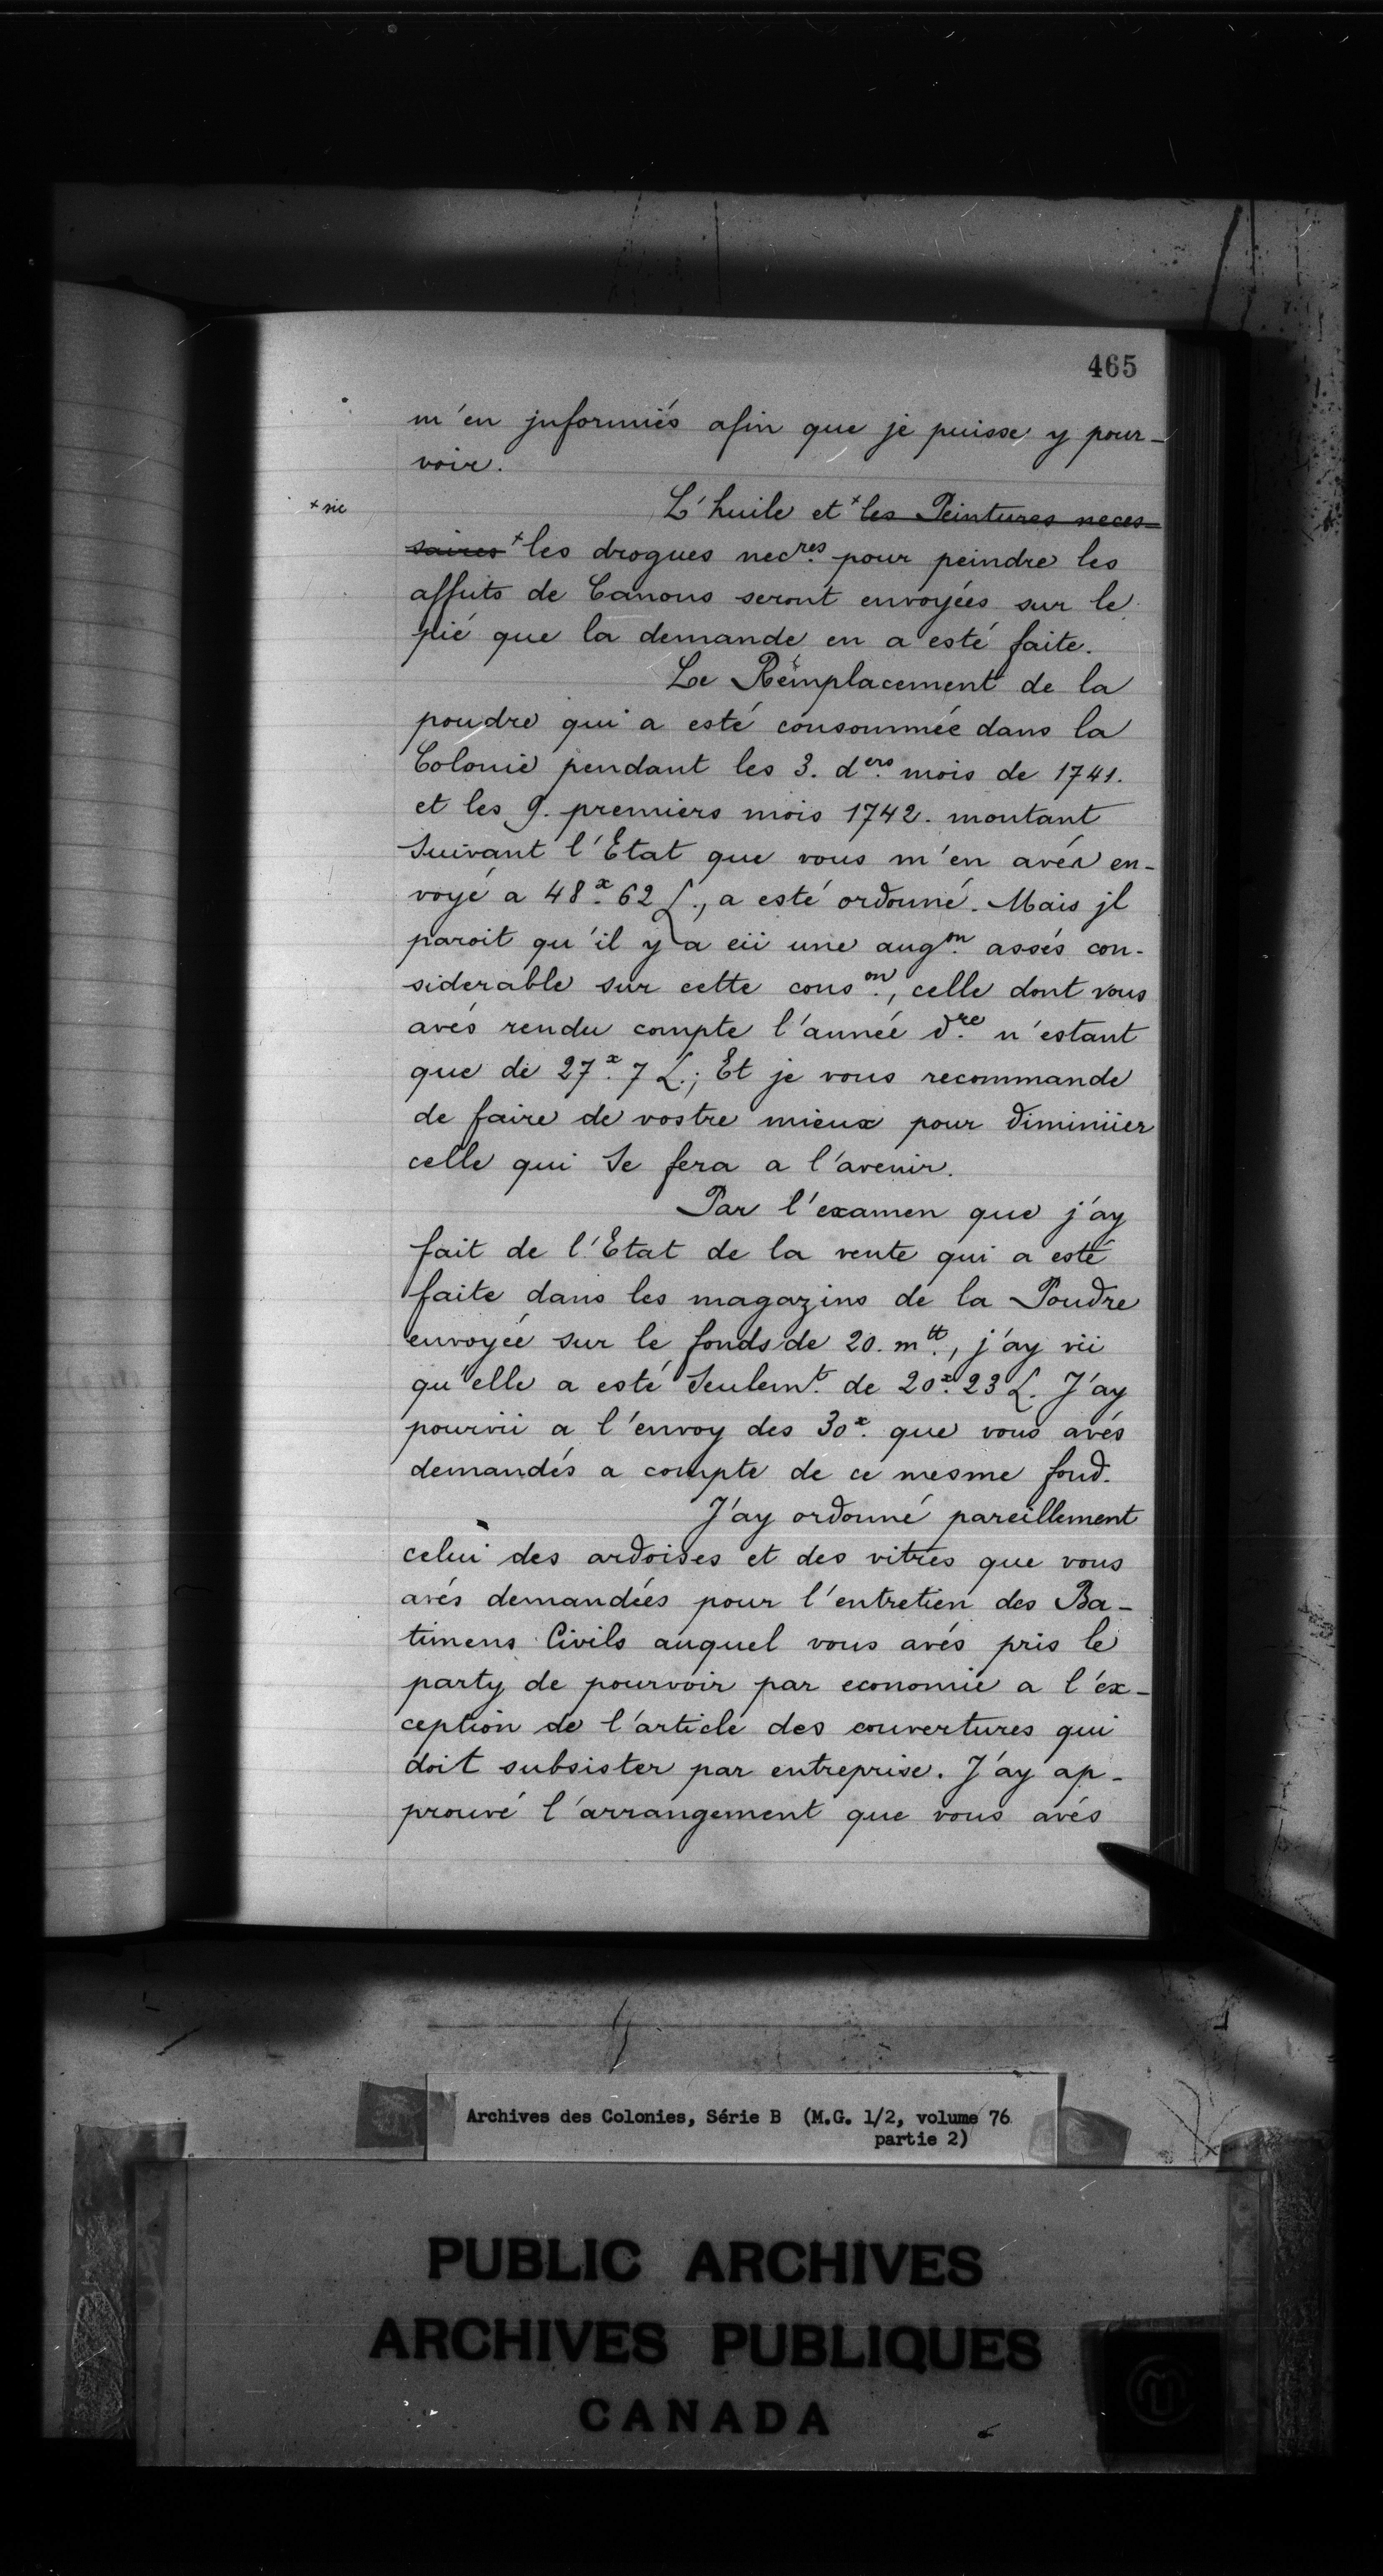 465
m'en jnformiés afin que je puisse y pour-
voir.
+ sic
L'huile et + les Peintures neces-
saires + les drogues necres. pour peindre les
affuts de Canons seront envoyées sur le
pié que la demande en a esté faite.
Le Remplacement de la
poudre qui a esté consommée dans la
Colonie pendant les 3. ders. mois de 1741.
et les 9. premiers mois 1742. montant
suivant l'Etat que vous m'en avés en-
voyé a 48x. 62 L., a esté ordonné. Mais jl
paroit qu'il y a eü une augon. assés con-
siderable sur cette conson., celle dont vous
avés rendu compte l'année dre. n'estant
que de 27x. 7 L.; Et je vous recommande
de faire de vostre mieux pour diminüer
celle qui se fera a l'avenir.
Par l'examen que j'ay
fait de l'Etat de la vente qui a esté
faite dans les magazins de la Poudre
envoyée sur le fonds de 20. mtt., j'ay vü
qu'elle a esté seulemt. de 20x. 23 L. J'ay
pourvü a l'envoy des 30x. que vous avés
demandés a compte de ce mesme fond.
J'ay ordonné pareillement
celui des ardoises et des vitres que vous
avés demandées pour l'entretien des Ba-
timens Civils auquel vous avés pris le
party de pourvoir par economie a l'ex-
ception de l'article des couvertures qui
doit subsister par entreprise. J'ay ap-
prouvé l'arrangement que vous avés
Archives des Colonies, Série B (M.G. 1/2, volume 76
partie 2)
PUBLIC ARCHIVES
ARCHIVES PUBLIQUES
CANADA